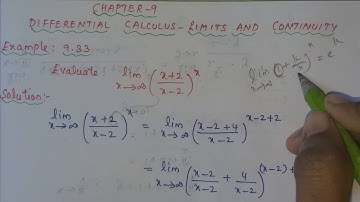 CHAPTER-9
DIFFERENTIAL CALCULUS-LIMITS AND CONTINUITY
Example: 9.33
Evaluate lim x→∞ ((x+2)/(x-2))^x
lim x→∞ (1+k/x)^x = e^k
Solution:-
lim x→∞ ((x+2)/(x-2))^x = lim x→∞ ((x-2+4)/(x-2))^(x-2+2)
= lim x→∞ ((x-2)/(x-2) + 4/(x-2))^(x-2)+